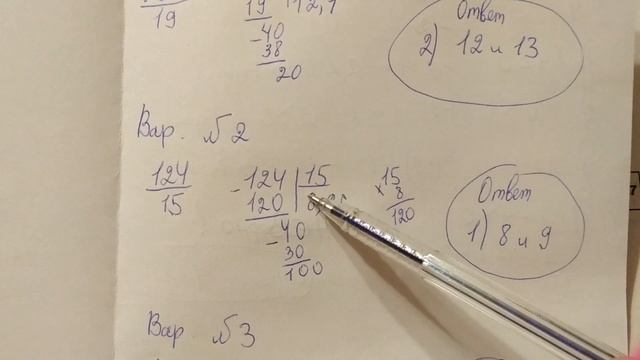 19
19
12,
-40
38
20
Ответ
2) 12 и 13
Вар. №2
124
15
-124 | 15
120
-40
30
100
15
× 8
120
Ответ
1) 8 и 9
Вар №3